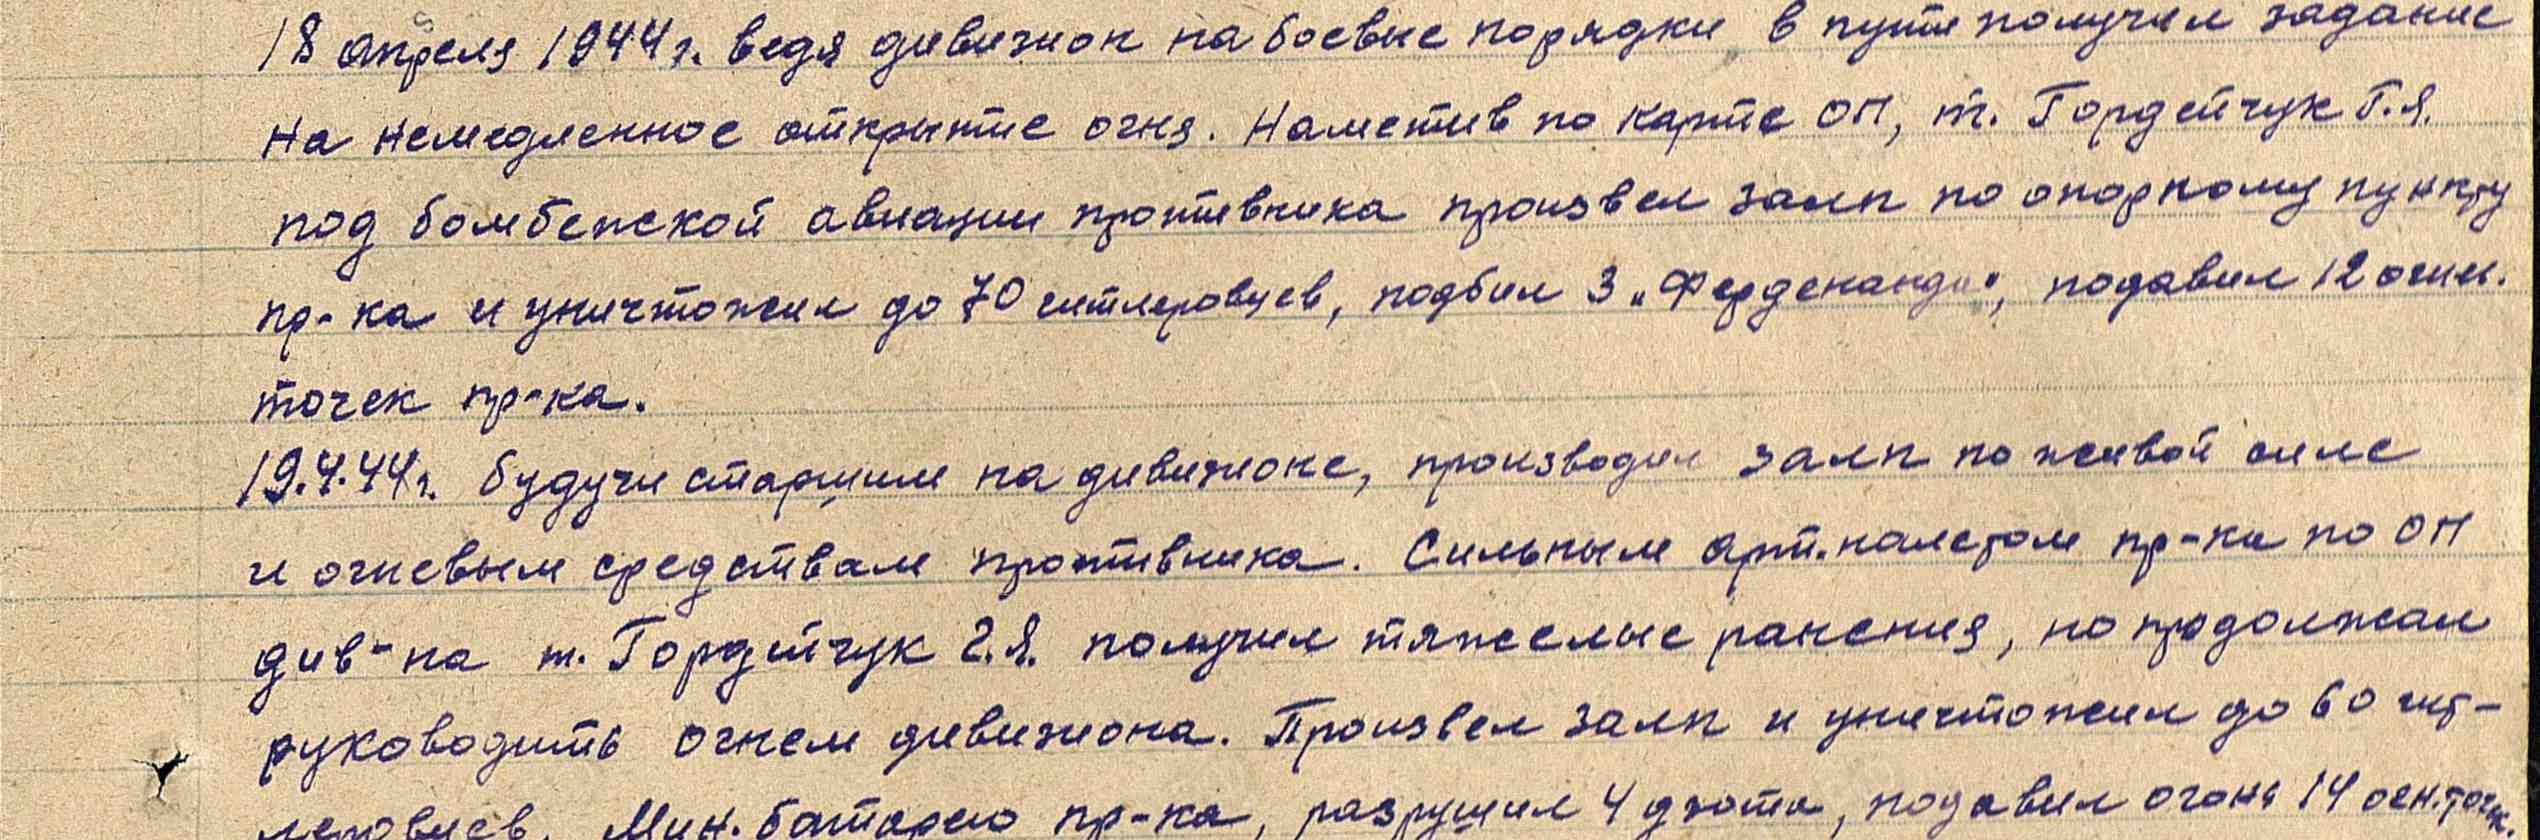 18 апреля 1944 г. ведя дивизион на боевые порядки в пути получил задание
на немедленное открытие огня. Наметив по карте ОП, т. Гордейчук Г.Я.
под бомбежкой авиации противника произвел залп по опорному пункту
пр-ка и уничтожил до 70 гитлеровцев, подбил 3 „Ферденанда", подавил 12 огнен.
точек пр-ка.
19.4.44 г. будучи старшим на дивизионе, производил залп по живой силе
и огневым средствам противника. Сильным арт.налетом пр-ка по ОП
див-на т. Гордейчук Г.Я. получил тяжелые ранения, но продолжал
руководить огнем дивизиона. Произвел залп и уничтожил до 60 гит-
леровцев. Мин. батарею пр-ка, разрушил 4 дзота, подавил огонь 14 огн.точек.